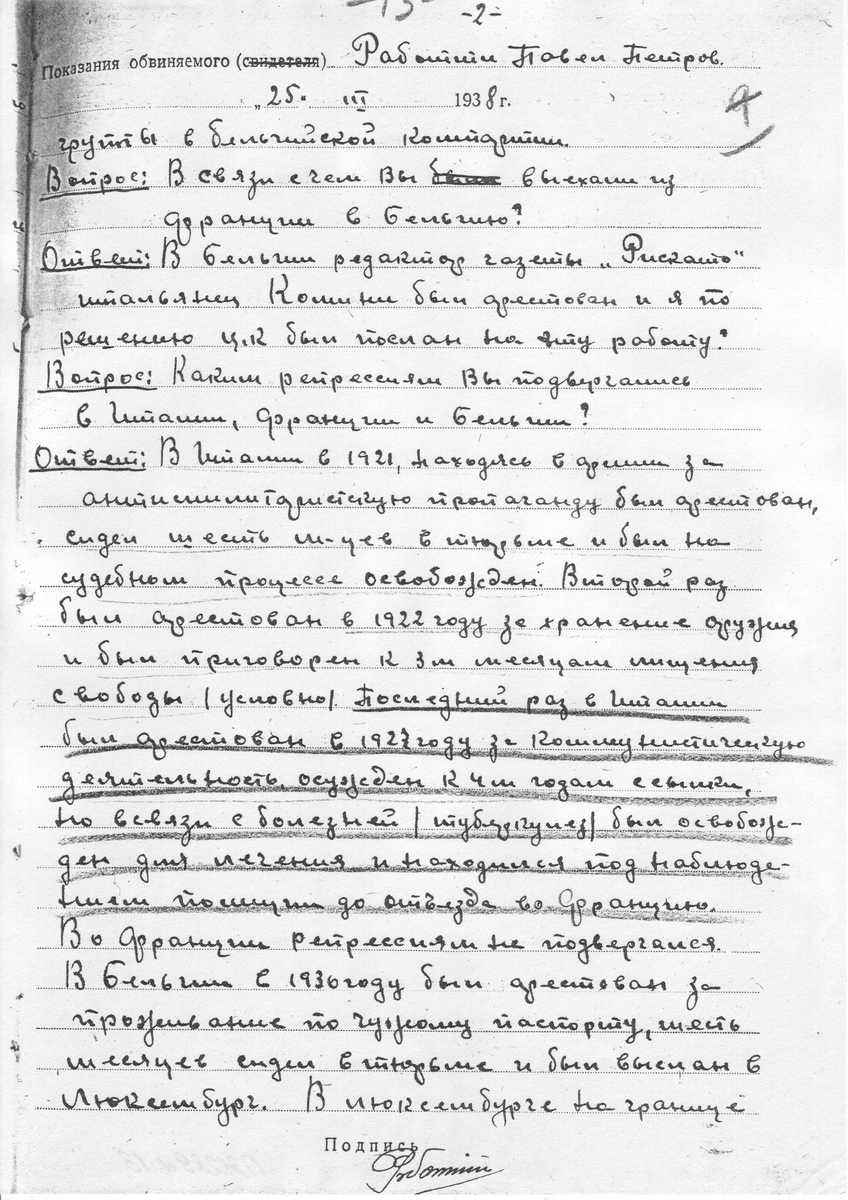 -2-
Показания обвиняемого (свидетеля) Работти Павел Петров.
„25" III 1938 г.
группы в бельгийской компартии.
Вопрос: В связи с чем Вы выехали из
Франции в Бельгию?
Ответ: В Бельгии редактор газеты „Рискато"
итальянец Комини был арестован и я по
решению ЦК был послан на эту работу.
Вопрос: Каким репрессиям Вы подвергались
в Италии, Франции и Бельгии?
Ответ: В Италии в 1921, находясь в армии за
антимилитаристскую пропаганду был арестован,
сидел шесть м-цев в тюрьме и был на
судебном процессе освобожден. Второй раз
был арестован в 1922 году за хранение оружия
и был приговорен к 3м месяцам лишения
свободы /условно/. Последний раз в Италии
был арестован в 1927 году за коммунистическую
деятельность, осужден к 4м годам ссылки,
но всвязи с болезней /туберкулез/ был освобож-
ден для лечения и находился под наблюде-
нием полиции до отъезда во Францию.
Во Франции репрессиям не подвергался.
В Бельгии в 1936 году был арестован за
проживание по чужому паспорту, шесть
месяцев сидел в тюрьме и был выслан в
Люксембург. В Люксембурге на границе
Подпись